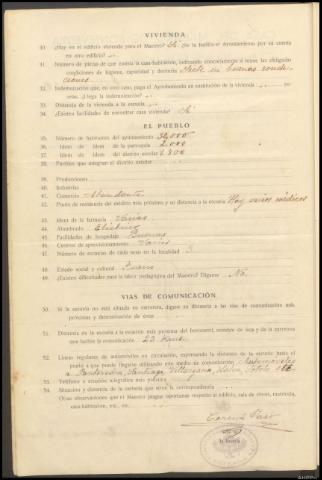 VIVIENDA
30. ¿Hay en el edificio vivienda para el Maestro? Sí ¿Se la facilita el Ayuntamiento por su cuenta
en otro edificio?
31. Número de piezas de que consta la casa-habitación, indicando concretamente si reúne las obligadas
condiciones de higiene, capacidad y decencia Siete en buenas condi-
ciones
32. Indemnización que, en otro caso, paga el Ayuntamiento en sustitución de la vivienda
setas. ¿Llega la indemnización?
33. Distancia de la vivienda a la escuela
34. ¿Existen facilidades de encontrar casa vivienda? Sí
EL PUEBLO
35. Número de habitantes del ayuntamiento 30,000
36. Idem de Idem de la parroquia 2.000
37. Idem de Idem del distrito escolar 800
38. Pueblos que integran el distrito escolar
39. Producciones
40. Industrias
41. Comercios Abundante
42. Punto de residencia del médico más próximo y su distancia a la escuela Hay varios médicos
43. Idem de la farmacia Varias
44. Alumbrado Eléctrico
45. Facilidades de hospedaje Buenas
46. Centros de aprovisionamiento Varios
47. Número de escuelas de cada sexo en la localidad 3
48. Estado social y cultural Bueno
49. ¿Existen dificultades para la labor pedagógica del Maestro? Díganse No.
VIAS DE COMUNICACIÓN
50. Si la escuela no está situada en carretera, dígase su distancia a las vías de comunicación más
próximas y denominación de éstas
51. Distancia de la escuela a la estación más próxima del ferrocarril, nombre de ésta y de la carretera
que facilita la comunicación 23 Kms.
52. Líneas regulares de automóviles en circulación, expresando la distancia de la escuela hasta el
punto a que puede llegarse utilizando este medio de comunicación Automóviles
a Pontevedra, Santiago, Villagarcía, Lalín,
53. Teléfono o estación telegráfica más próxima
54. Situación y distancia de la cartería que sirve la correspondencia
Otras observaciones que el Maestro juzgue oportunas respecto al edificio, sala de clases, matrícula,
casa-habitación, etc., etc.